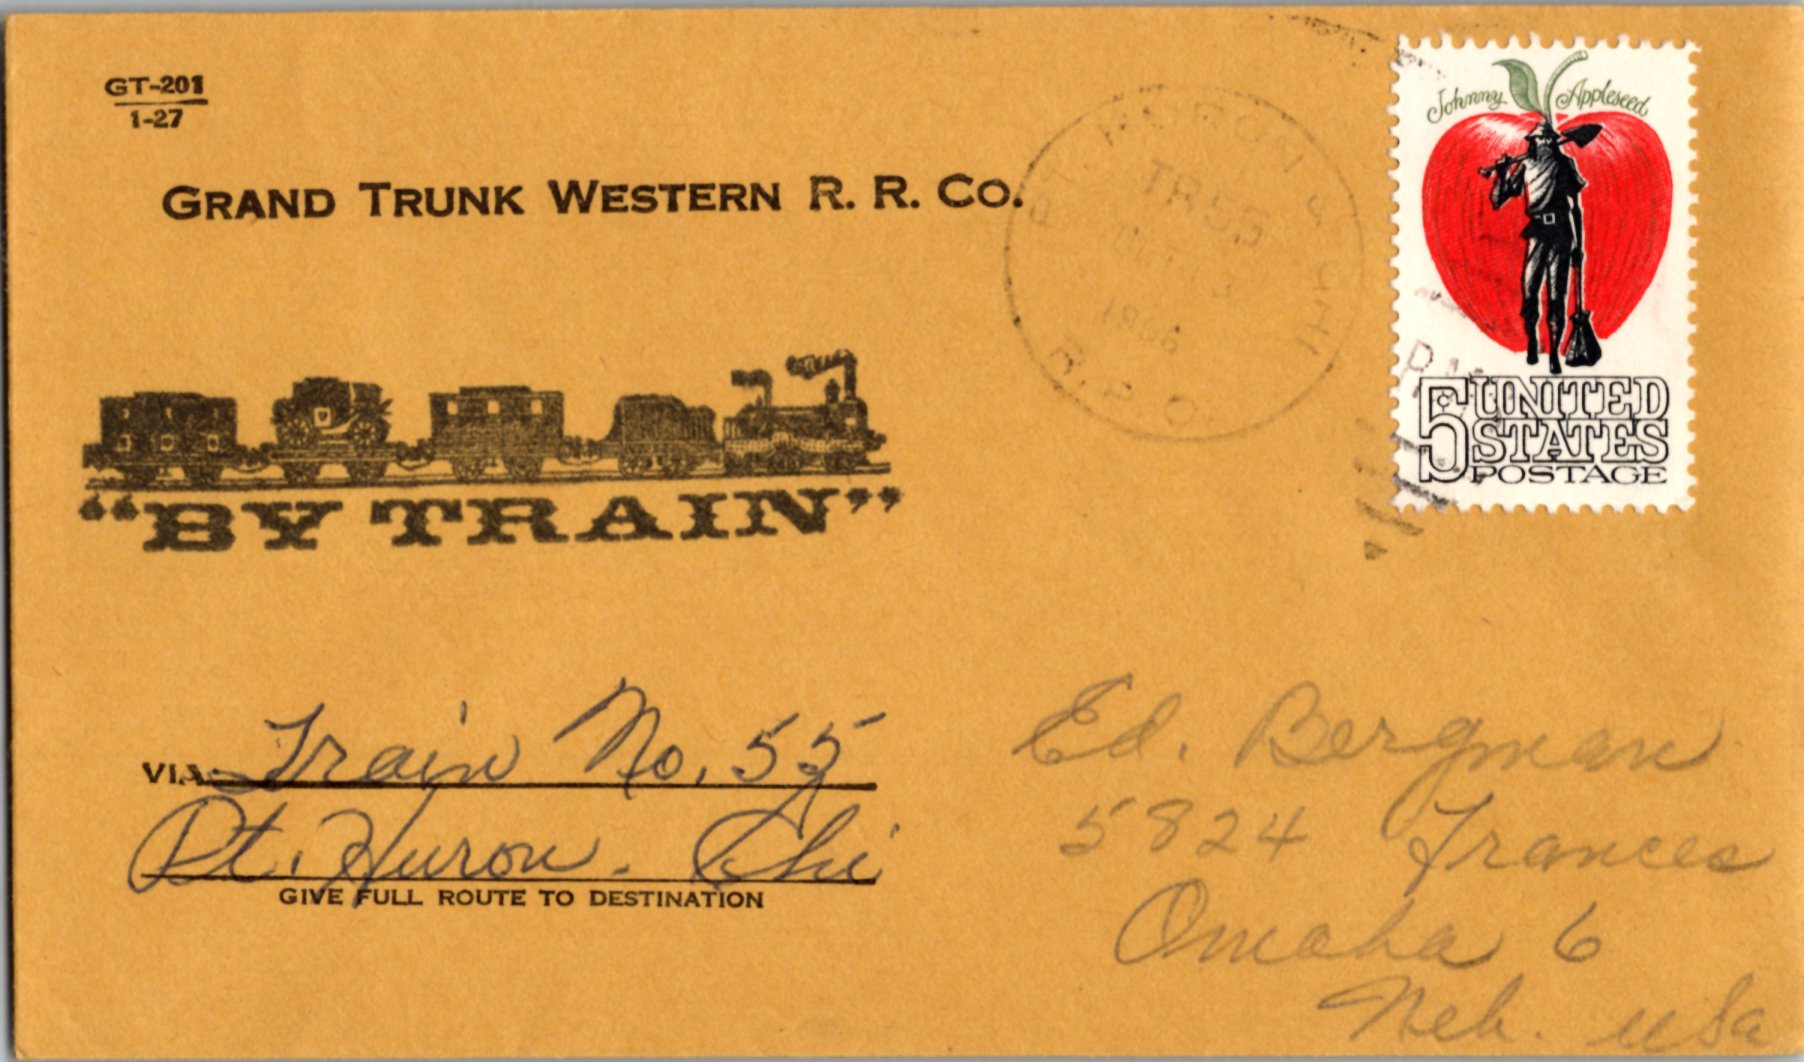 GT-201
1-27
GRAND TRUNK WESTERN R. R. CO.
PT. HURON & CHI.
TR 55
OCT 13
1966
R.P.O.
Johnny Appleseed
5¢ UNITED
STATES
POSTAGE
"BY TRAIN"
VIA Train No. 55
Pt. Huron. Chi
GIVE FULL ROUTE TO DESTINATION
Ed. Bergman
5824 Frances
Omaha 6
Neb. USA